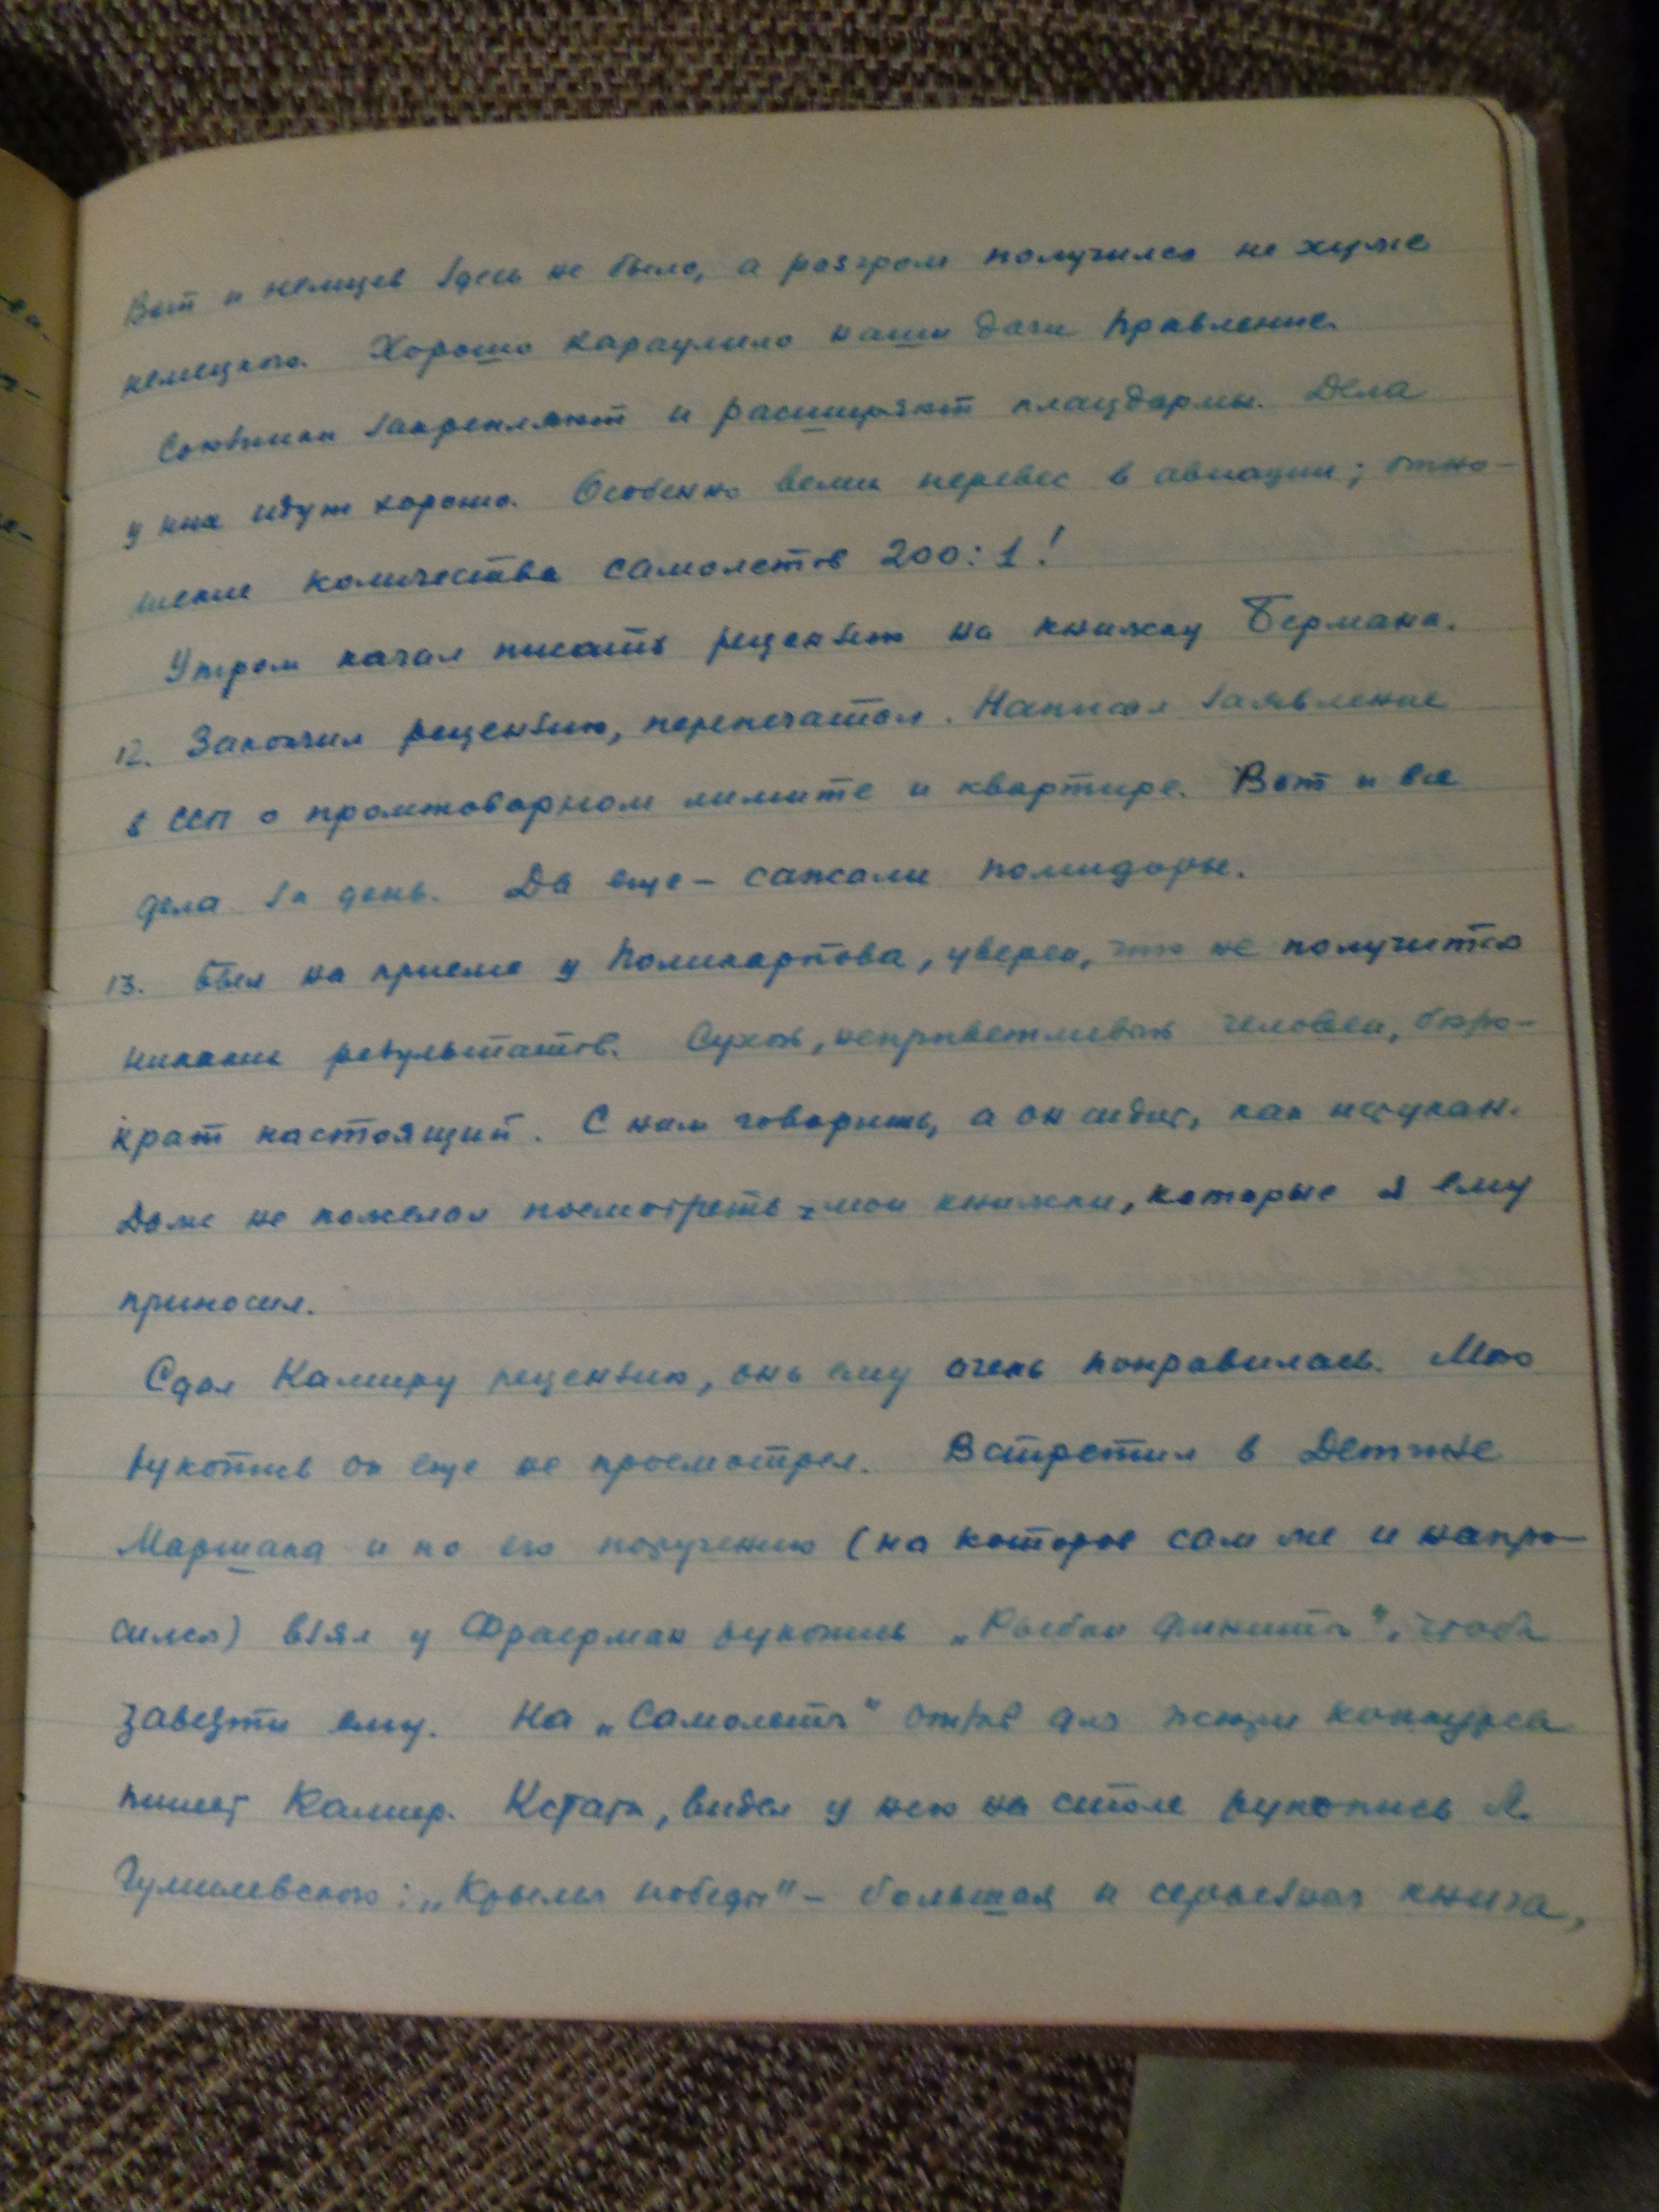 Вот и немцев здесь не было, а разгром получился не хуже
немецкого. Хорошо караулило наши дачи Правление.
Союзники закрепляют и расширяют плацдармы. Дела
у них идут хорошо. Особенно велик перевес в авиации; отно-
шение количества самолетов 200:1!
Утром начал писать рецензию на книжку Бермана.
12. Закончил рецензию, перепечатал. Написал заявление
в ССП о промтоварном лимите и квартире. Вот и все
дела за день. Да еще – сажали помидоры.
13. Был на приеме у Поликарпова, уверен, что не получится
никаких результатов. Сухой, неприветливый человек, бюро-
крат настоящий. С ним говоришь, а он сидит, как истукан.
Даже не пожелал посмотреть мои книжки, которые я ему
приносил.
Сдал Камиру рецензию, она ему очень понравилась. Мою
рукопись он еще не просмотрел. Встретил в Детгизе
Маршака и по его поручению (на которое сам же и напро-
сился) взял у Фраерман рукопись „Рыбки Финиты", чтобы
завезти ему. На „Самолеты" отзыв для жюри конкурса
пишет Камир. Кстати, видел у него на столе рукопись Л.
Гумилевского: „Крылья победы" – большая и серьезная книга,